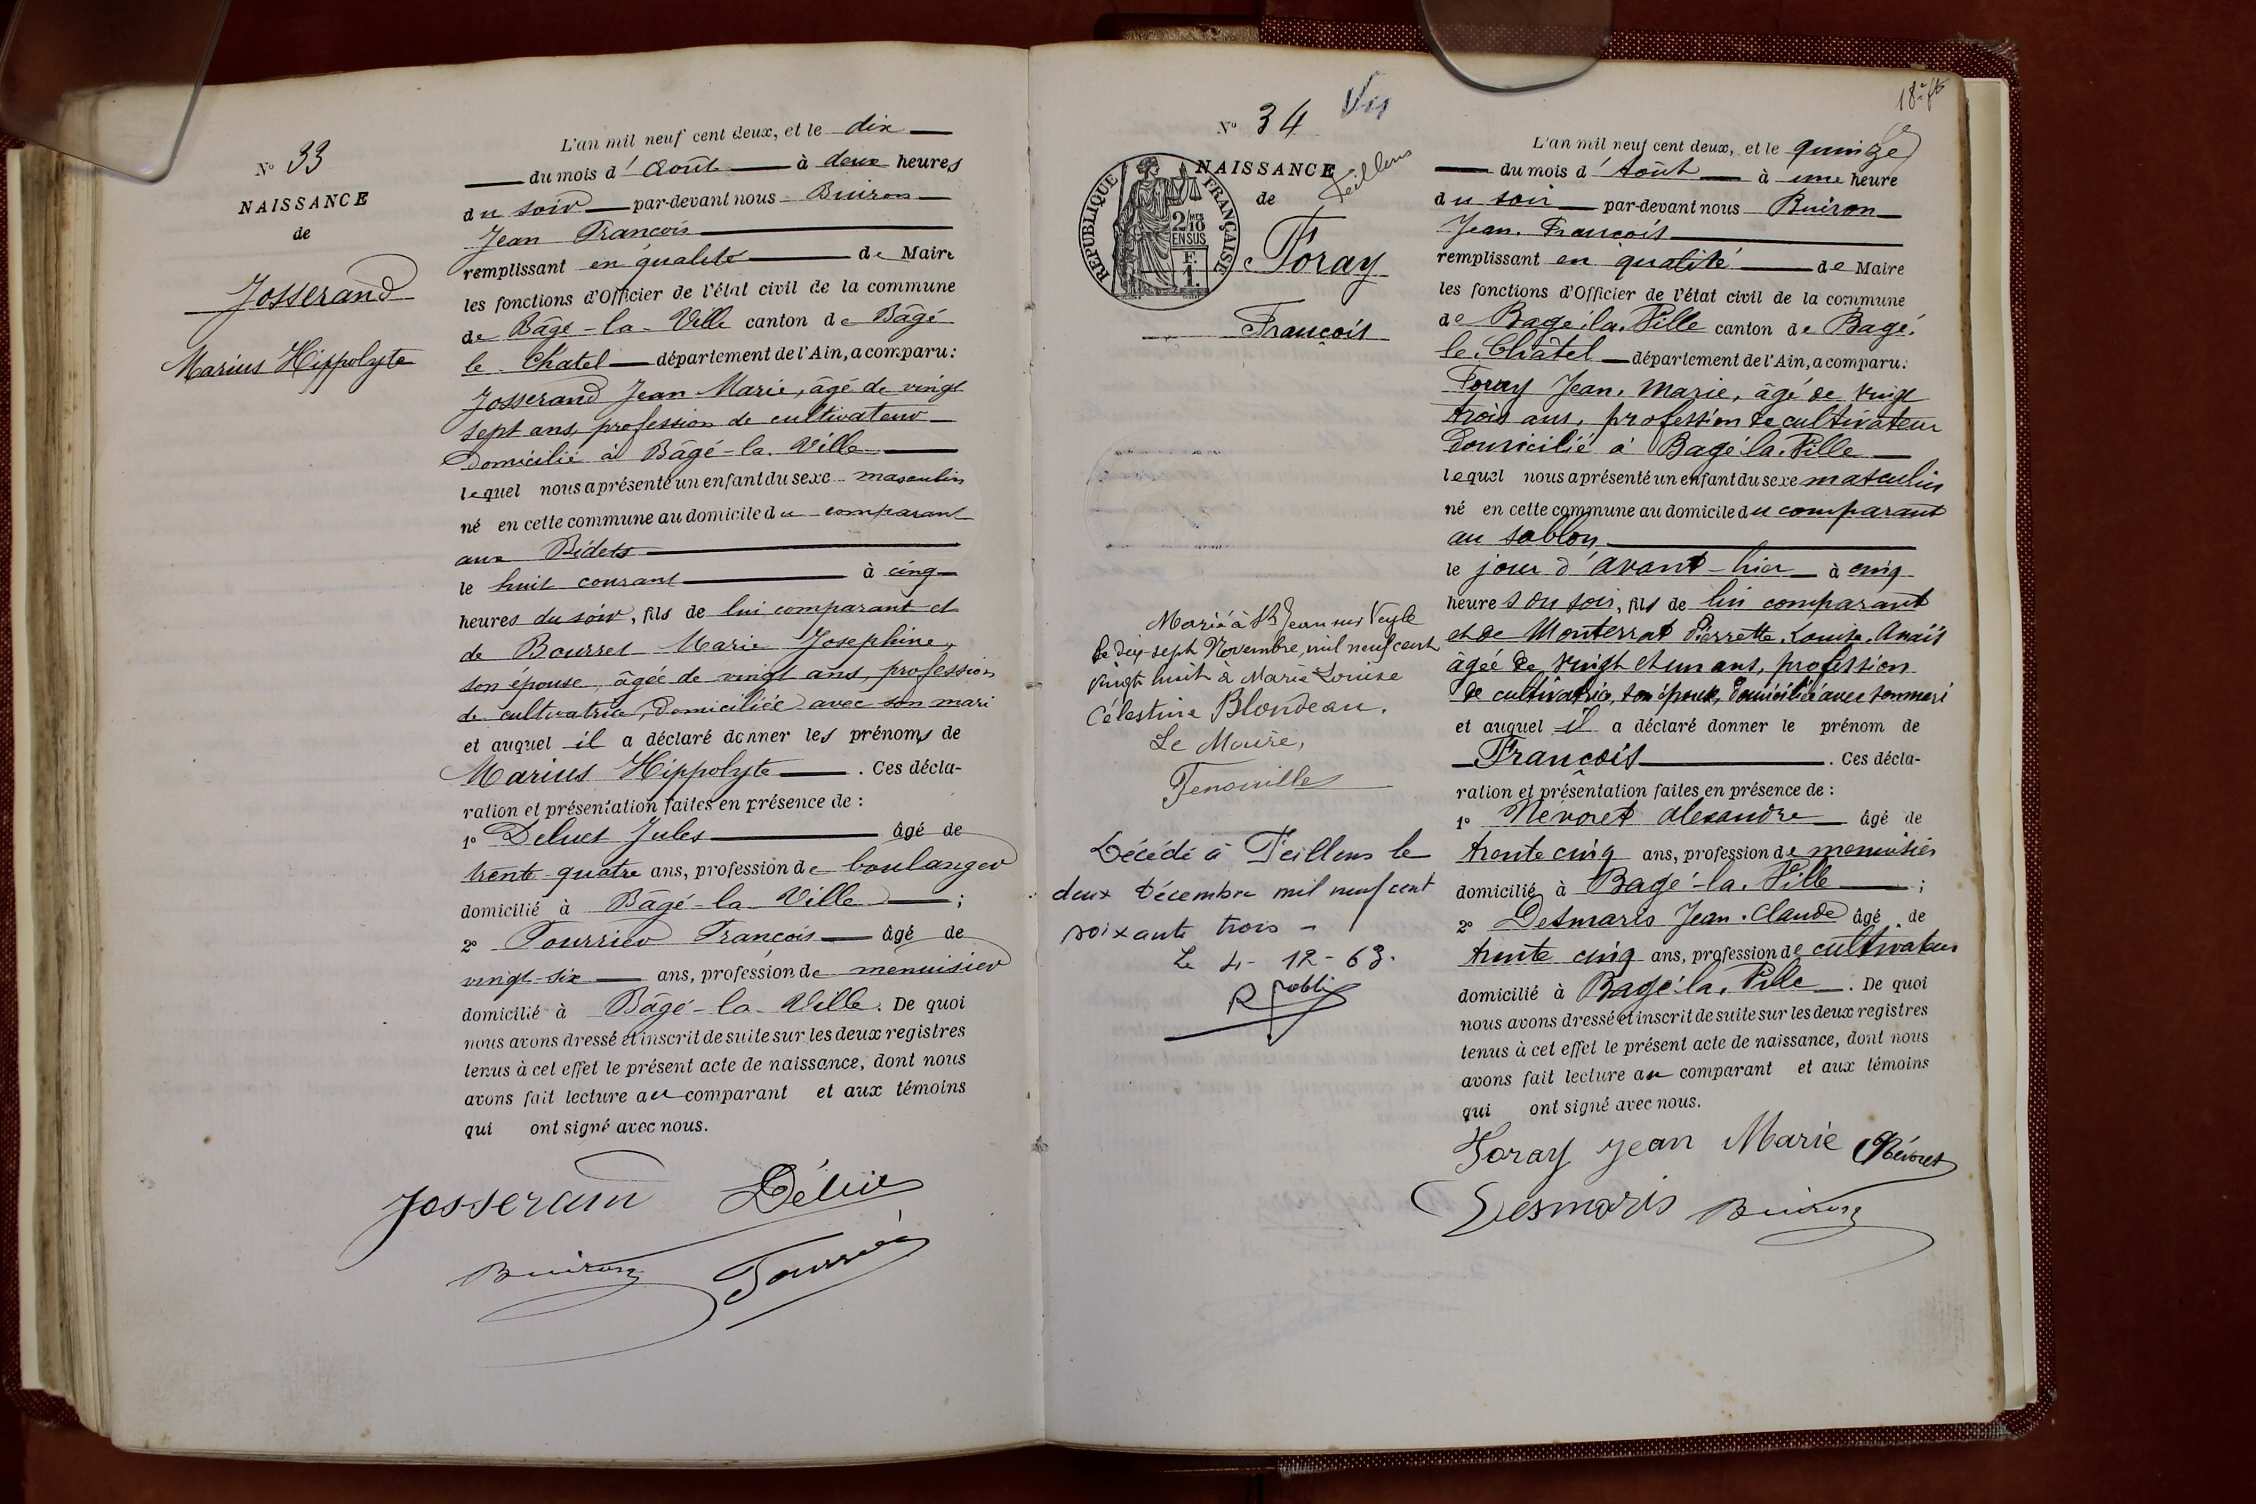 N° 33
NAISSANCE
de
Josserand
Marius Hippolyte
L'an mil neuf cent deux, et le dix
du mois d'Août à deux heures
du soir par-devant nous Buiron
Jean François
remplissant en qualité de Maire
les fonctions d'Officier de l'état civil de la commune
de Bâgé-la-Ville canton de Bâgé
le Chatel département de l'Ain, a comparu :
Josserand Jean Marie, âgé de vingt
sept ans, profession de cultivateur
domicilié à Bâgé-la-Ville
lequel nous a présenté un enfant du sexe masculin
né en cette commune au domicile du comparant
aux Bidets
le huit courant à cinq
heures du soir, fils de lui comparant et
de Bourret Marie Josephine,
son épouse, âgée de vingt ans, profession
de cultivatrice, domiciliée avec son mari
et auquel il a déclaré donner les prénoms de
Marius Hippolyte. Ces décla-
ration et présentation faites en présence de :
1° Deluet Jules âgé de
trente-quatre ans, profession de boulanger
domicilié à Bâgé-la-Ville ;
2° Fourrier François âgé de
vingt-six ans, profession de menuisier
domicilié à Bâgé-la-Ville. De quoi
nous avons dressé et inscrit de suite sur les deux registres
tenus à cet effet le présent acte de naissance, dont nous
avons fait lecture au comparant et aux témoins
qui ont signé avec nous.
Josserand
Buiron
18e ft
N° 34
NAISSANCE
de
Feillens
RÉPUBLIQUE FRANÇAISE
2/10
EN SUS
F.
1.
Foray
François
Marié à St Jean sur Veyle
le dix sept Novembre mil neuf cent
vingt huit à Marie Louise
Célestine Blondeau.
Le Maire,
Décédé à Feillens le
deux Décembre mil neuf cent
soixante trois -
Le 4-12-63.
L'an mil neuf cent deux, et le quinze
du mois d'Août à une heure
du soir par-devant nous Buiron
Jean-François
remplissant en qualité de Maire
les fonctions d'Officier de l'état civil de la commune
de Bagé-la-Ville canton de Bagé-
le-Châtel département de l'Ain, a comparu :
Foray Jean-Marie, âgé de vingt
trois ans, profession de cultivateur
domicilié à Bagé-la-Ville
lequel nous a présenté un enfant du sexe masculin
né en cette commune au domicile du comparant
au sablon
le jour d'avant-hier à cinq
heures du soir, fils de lui comparant
et de Monterrat Pierrette-Louise-Anaïs
âgée de vingt et un ans, profession
de cultivatrice, son épouse, domiciliée avec son mari
et auquel il a déclaré donner le prénom de
François. Ces décla-
ration et présentation faites en présence de :
1° Névoret Alexandre âgé de
trente cinq ans, profession de menuisier
domicilié à Bagé-la-Ville ;
2° Desmaris Jean-Claude âgé de
trente cinq ans, profession de cultivateur
domicilié à Bagé-la-Ville. De quoi
nous avons dressé et inscrit de suite sur les deux registres
tenus à cet effet le présent acte de naissance, dont nous
avons fait lecture au comparant et aux témoins
qui ont signé avec nous.
Foray Jean Marie Névoret
Desmaris Buiron